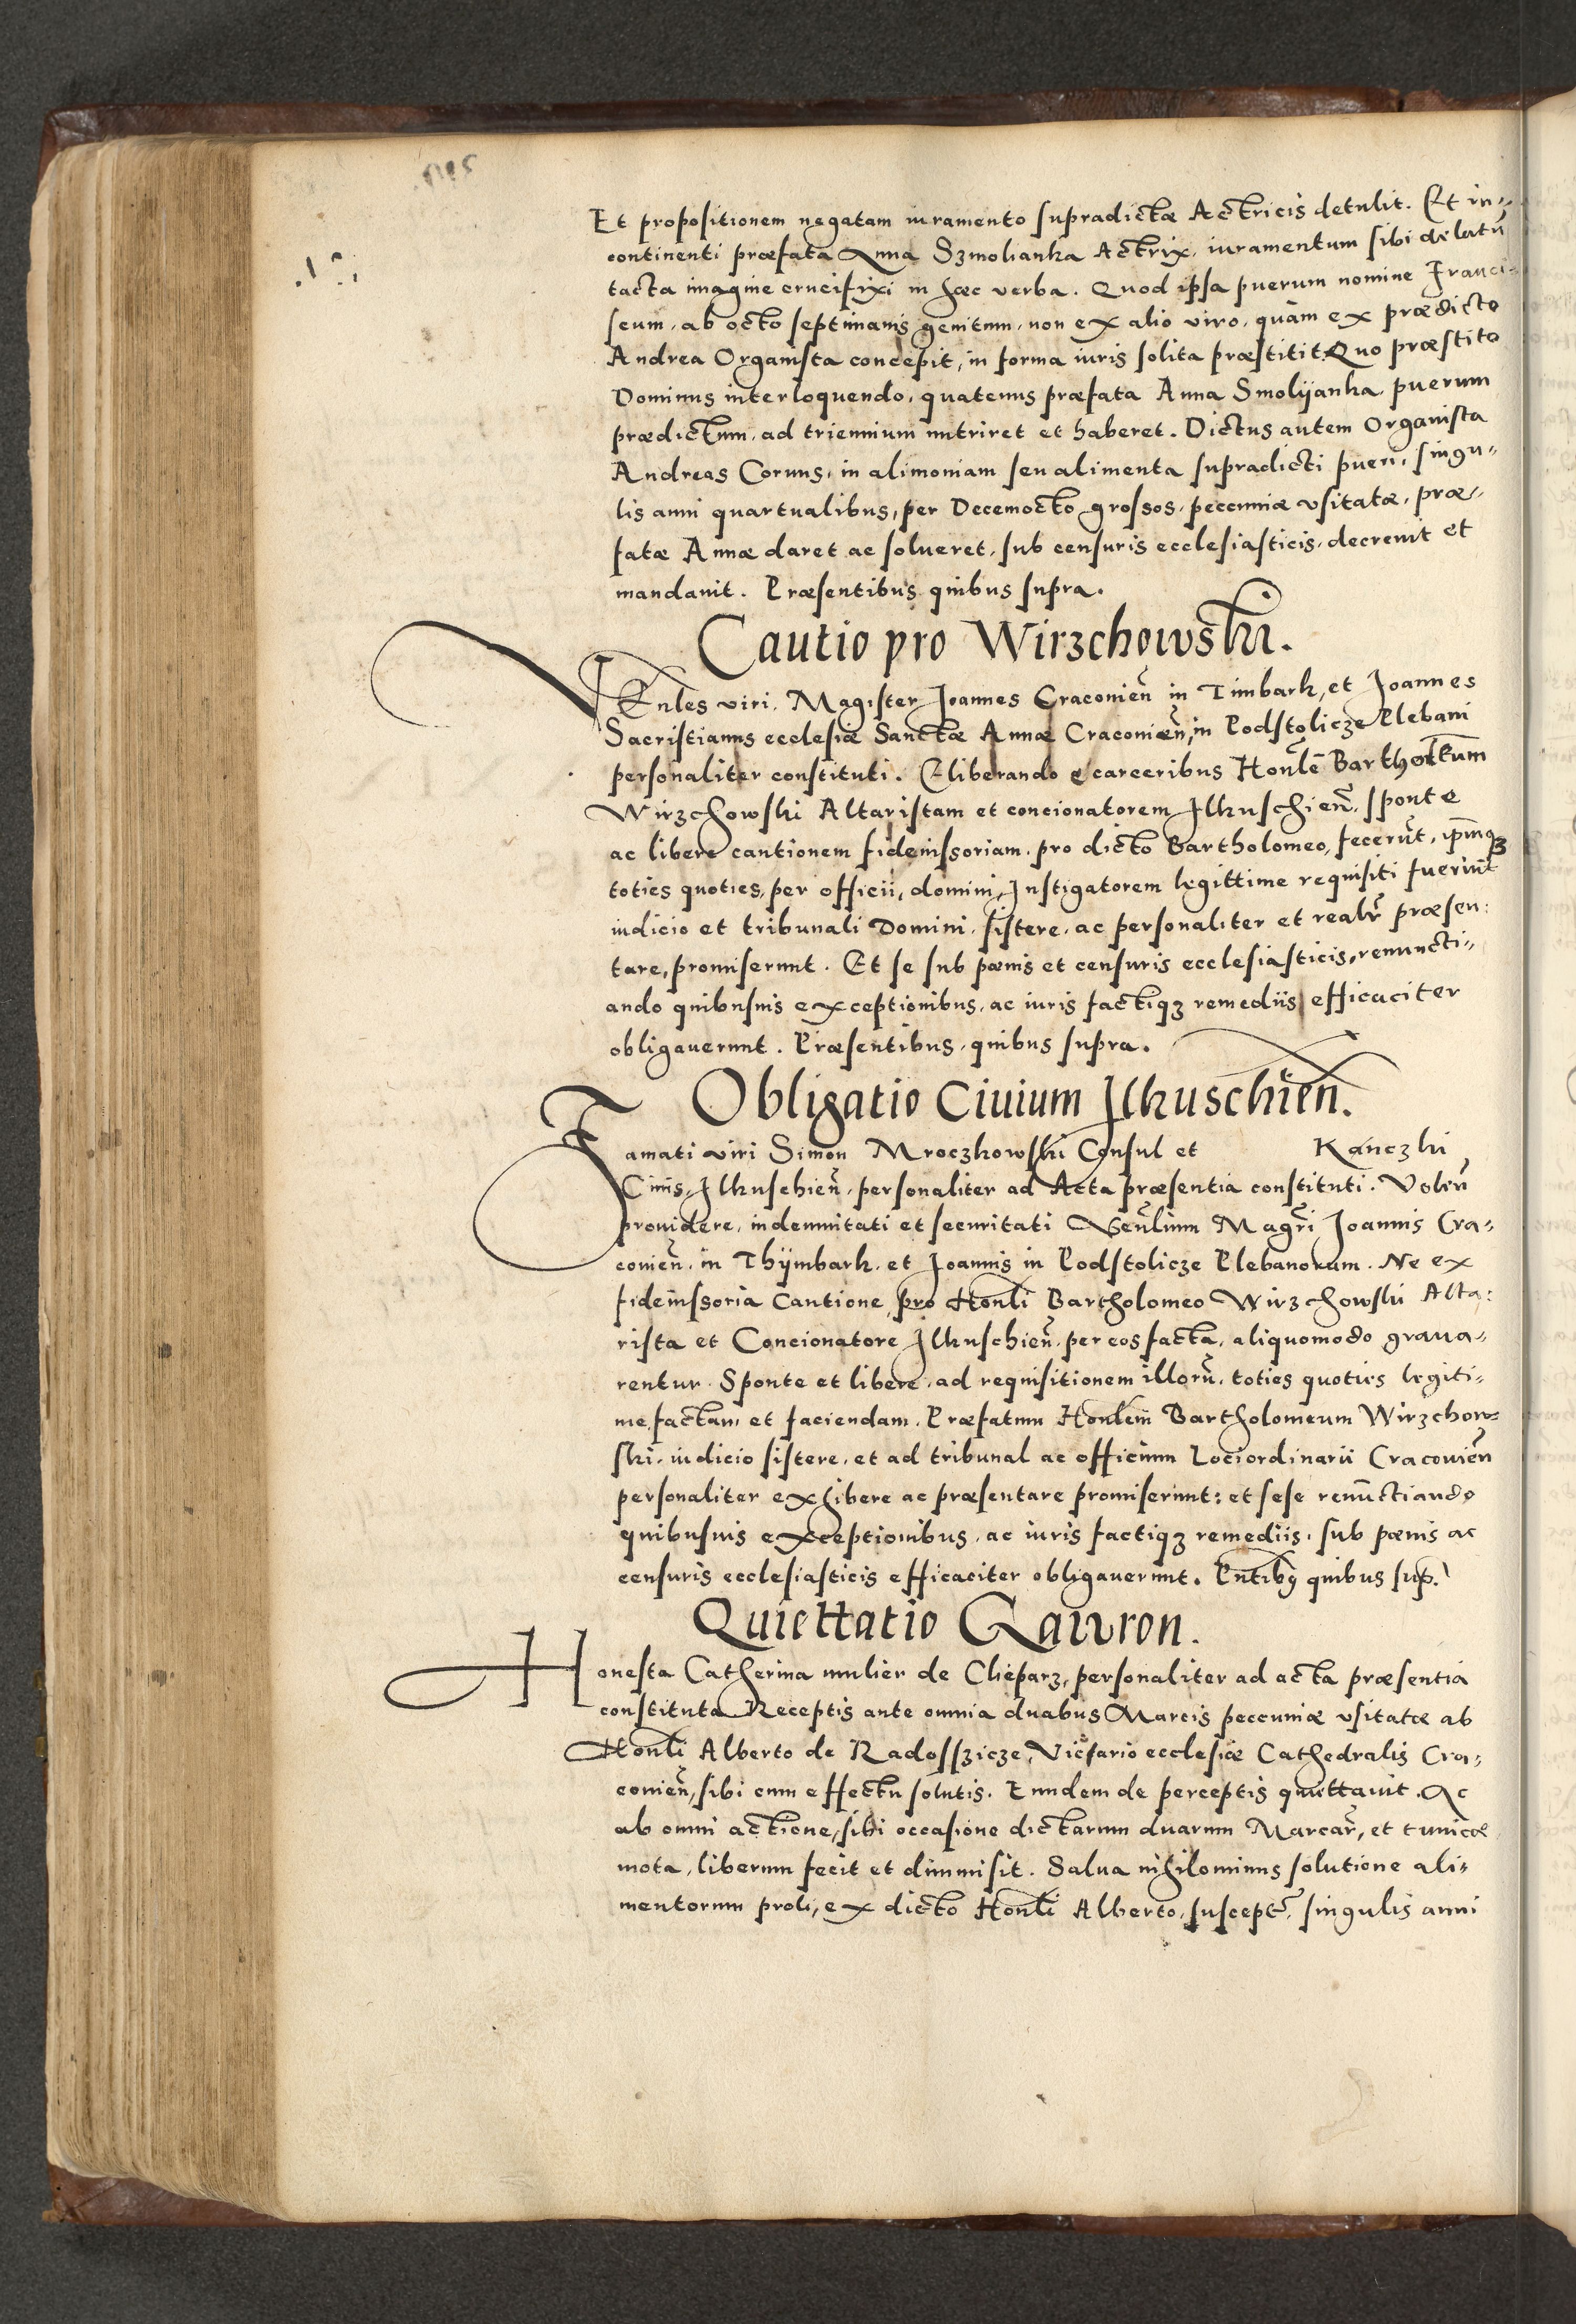 Et propositionem negatam iuramento supradictæ Actricis detulit. Et in-
continenti præfata Anna Szmolianka Actrix, iuramentum sibi delatũ
tacta imagine crucifixi in hæc verba. Quod ipsa puerum nomine Franci-
scum, ab octo septimanis genitum, non ex alio viro, quàm ex prædicto
Andrea Organista concepit, in forma iuris solita præstitit. Quo præstito
Dominus interloquendo, quatenus præfata Anna Smolÿanka, puerum
prædictum, ad triennium nutriret et haberet. Dictus autem Organista
Andreas Coruus, in alimoniam seu alimenta supradicti pueri, singu-
lis anni quartualibus, per Decemocto grossos, peccuniæ vsitatæ, præ-
fatæ Annæ daret ac solueret, sub censuris ecclesiasticis, decreuit et
mandauit. Præsentibus quibus supra.
Cautio pro Wirzchowski.
VEnles viri, Magister Joannes Cracovień in Timbark, et Joannes
Sacristianus ecclesiæ Sanctæ Annæ Cracovień, in Podstolicze Plebani
personaliter constituti. Eliberando e carceribus Honlẽ Bartholeum
Wirzchowski Altaristam et concionatorem Jlkuschień, sponte
ac libere cautionem fideiussoriam, pro dicto Bartholomeo, fecerũt, ipmq3
toties quoties, per officii, domini, Instigatorem legittime requisiti fuerint
iudicio et tribunali Domini, sistere, ac personaliter et realr præsen:
tare, promiserunt. Et se sub pænis et censuris ecclesiasticis, renuncti-
ando quibusuis exceptionibus, ac iuris factiq3 remediis efficaciter
obligauerunt. Præsentibus, quibus supra.
Obligatio Ciuium Jlkuschień.
Famati viri Simon Mroczkowski Consul et Kanczki
Ciuis, Jlkuschień, personaliter ad Acta præsentia constituti. Voleń
prouidere, indemnitati et securitati Venlium Magri Joannis Cra-
covień, in Thÿmbark, et Joannis in Podstolicze Plebanorum. Ne ex
fideiussoria Cautione, pro Honli Bartholomeo Wirzchowski Alta:
rista et Concionatore Jlkuschień, per eos facta, aliquomodo graua-
rentur. Sponte et libere, ad requisitionem illorũ, toties quoties legiti-
me factam et faciendam. Præfatum Honlem Bartholomeum Wirzchow-
ski, iudicio sistere, et ad tribunal ac officium Lociordinarii Cracovień
personaliter exhibere ac præsentare promiserunt: et sese renũctiando
quibusuis exceptionibus, ac iuris factiq3 remediis, sub pænis ac
censuris ecclesiasticis efficaciter obligauerunt. Pntibq quibus sup.
Quiettatio Gawron.
Honesta Catherina mulier de Cleparz, personaliter ad acta præsentia
constituta Receptis ante omnia duabus Marcis peccuniæ vsitatæ ab
Honli Alberto de Radosszicze, Vicario ecclesiæ Cathedralis Cra-
covień, sibi cum effectu solutis. Eundem de perceptis quittauit. Ac
ab omni actione, sibi occasione dictarum duarum Marcar, et tunicæ
mota, liberum fecit et dimmisit. Salua nihilominus solutione ali-
mentorum proli, ex dicto Honli Alberto, suscept, singulis anni